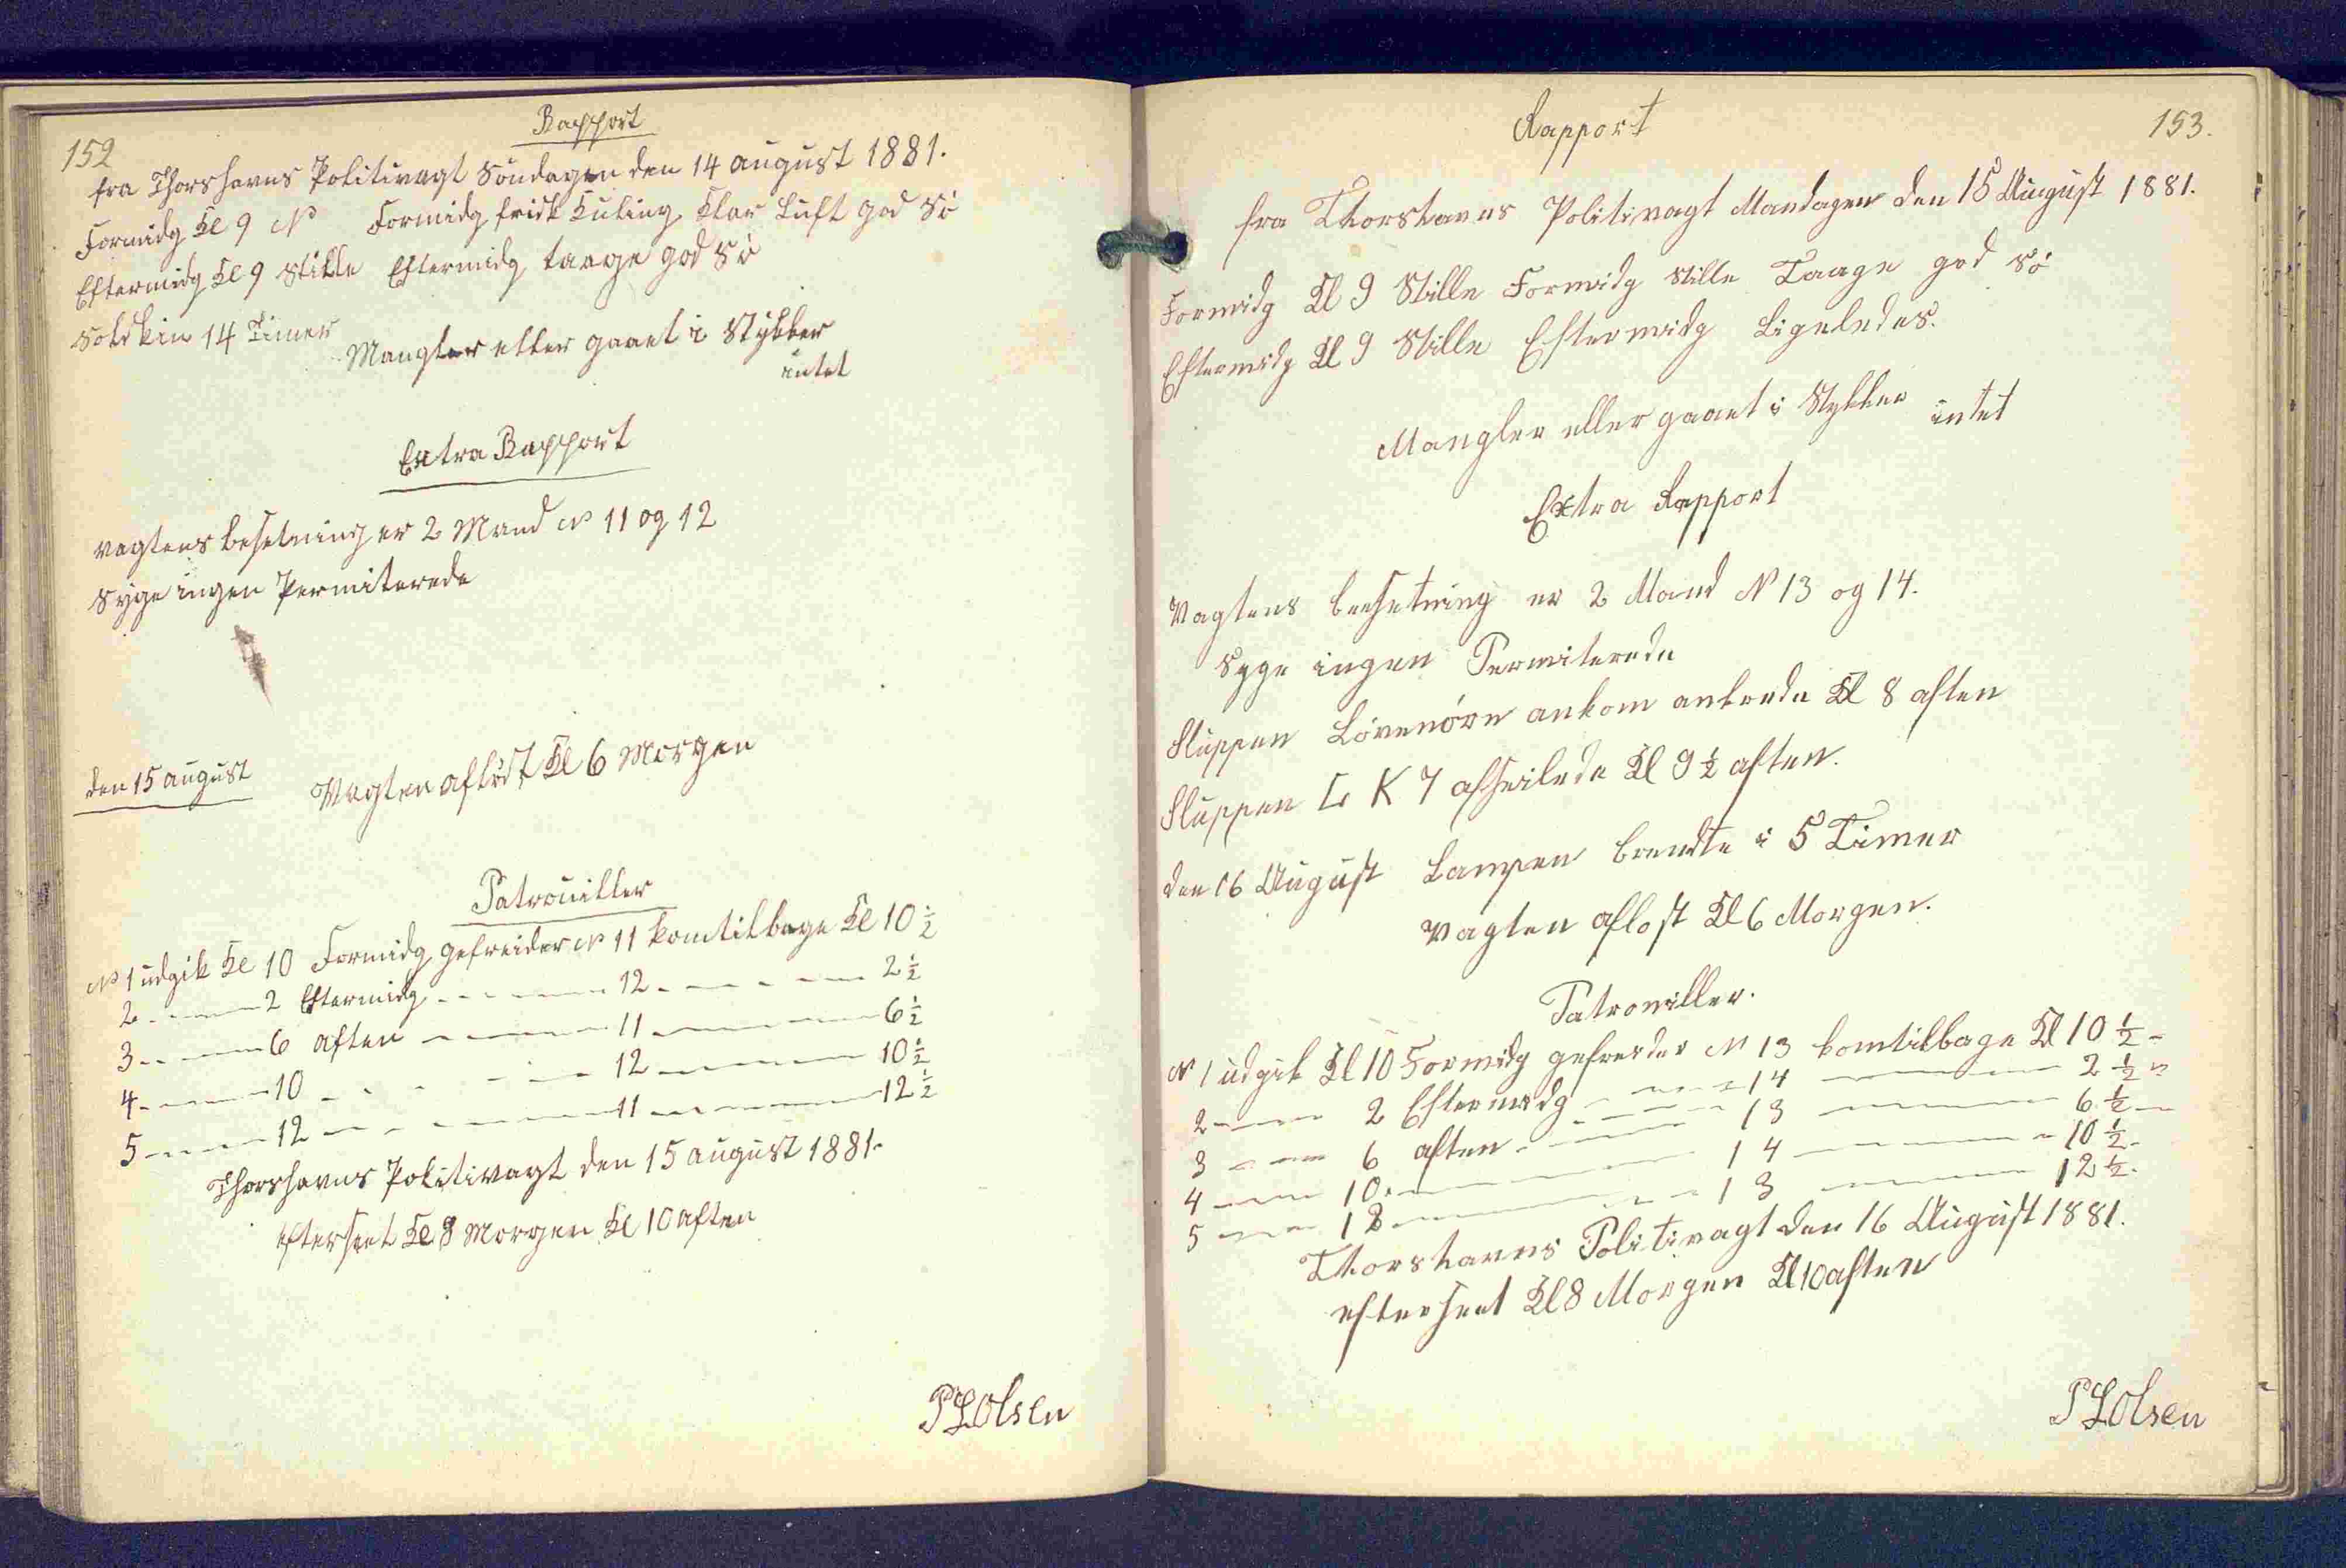 152
Rapport
fra Thorshavns Politivagt Söndagen den 14 august 1881.
Formidg Kl 9 N Formidg frisk Kuling Klar Luft god Sö
Eftermidg Kl 9 Stille Eftermidg taage god Sö
Solskin 14 Timer
Mangler eller gaaet i Stykker
intet
Extra Rapport
vagtens besetning er 2 Mand No 11 og 12
Syge ingen Permiterede
den 15 august Vagten aflöst Kl 6 Morgen
Patrouiller
No 1 udgik Kl 10 Formidg gefreider No 11 kom tilbage Kl 10 ½
2 - - - 2 Eftermidg - - - 12 - - - 2 ½
3 - - - 6 aften - - - 11 - - - 6 ½
4 - - - 10 - - - 12 - - - 10 ½
5 - - - 12 - - - 11 - - - 12 ½
Thorshavns Politivagt den 15 august 1881.
efterseet Kl 8 Morgen Kl 10 aften
P L Olsen
153.
Rapport
fra Thorshavns Politivagt Mandagen den 15 August 1881.
Formidg Kl 9 Stille Formidg Stille Taage god Sö
Eftermidg Kl 9 Stille Eftermidg Ligeledes.
Mangler eller gaaet i Stykker intet
Extra Rapport
Vagtens beesetning er 2 Mand No 13 og 14.
Syge ingen Permiterede
Sluppen Lövenörn ankom ankrede Kl 8 aften
Sluppen L K 7 afseilede Kl 9 ½ aften.
den 16 August Lampen brendte i 5 Timer
Vagten aflost Kl 6 Morgen.
Patrouiller.
No 1 udgik Kl 10 Formidg gefreider No 13 kom tilbage Kl 10 ½ -
2 - - - 2 Eftermidg - - - 14 - - - 2 ½ "
3 - - - 6 aften - - - 13 - - - 6 ½ -
4 - - - 10 - - - 14 - - - 10 ½ -
5 - - - 12 - - - 13 - - - 12 ½ -
Thorshavns Politivagt den 16 August 1881.
efterseet Kl 8 Morgen Kl 10 aften
P L Olsen